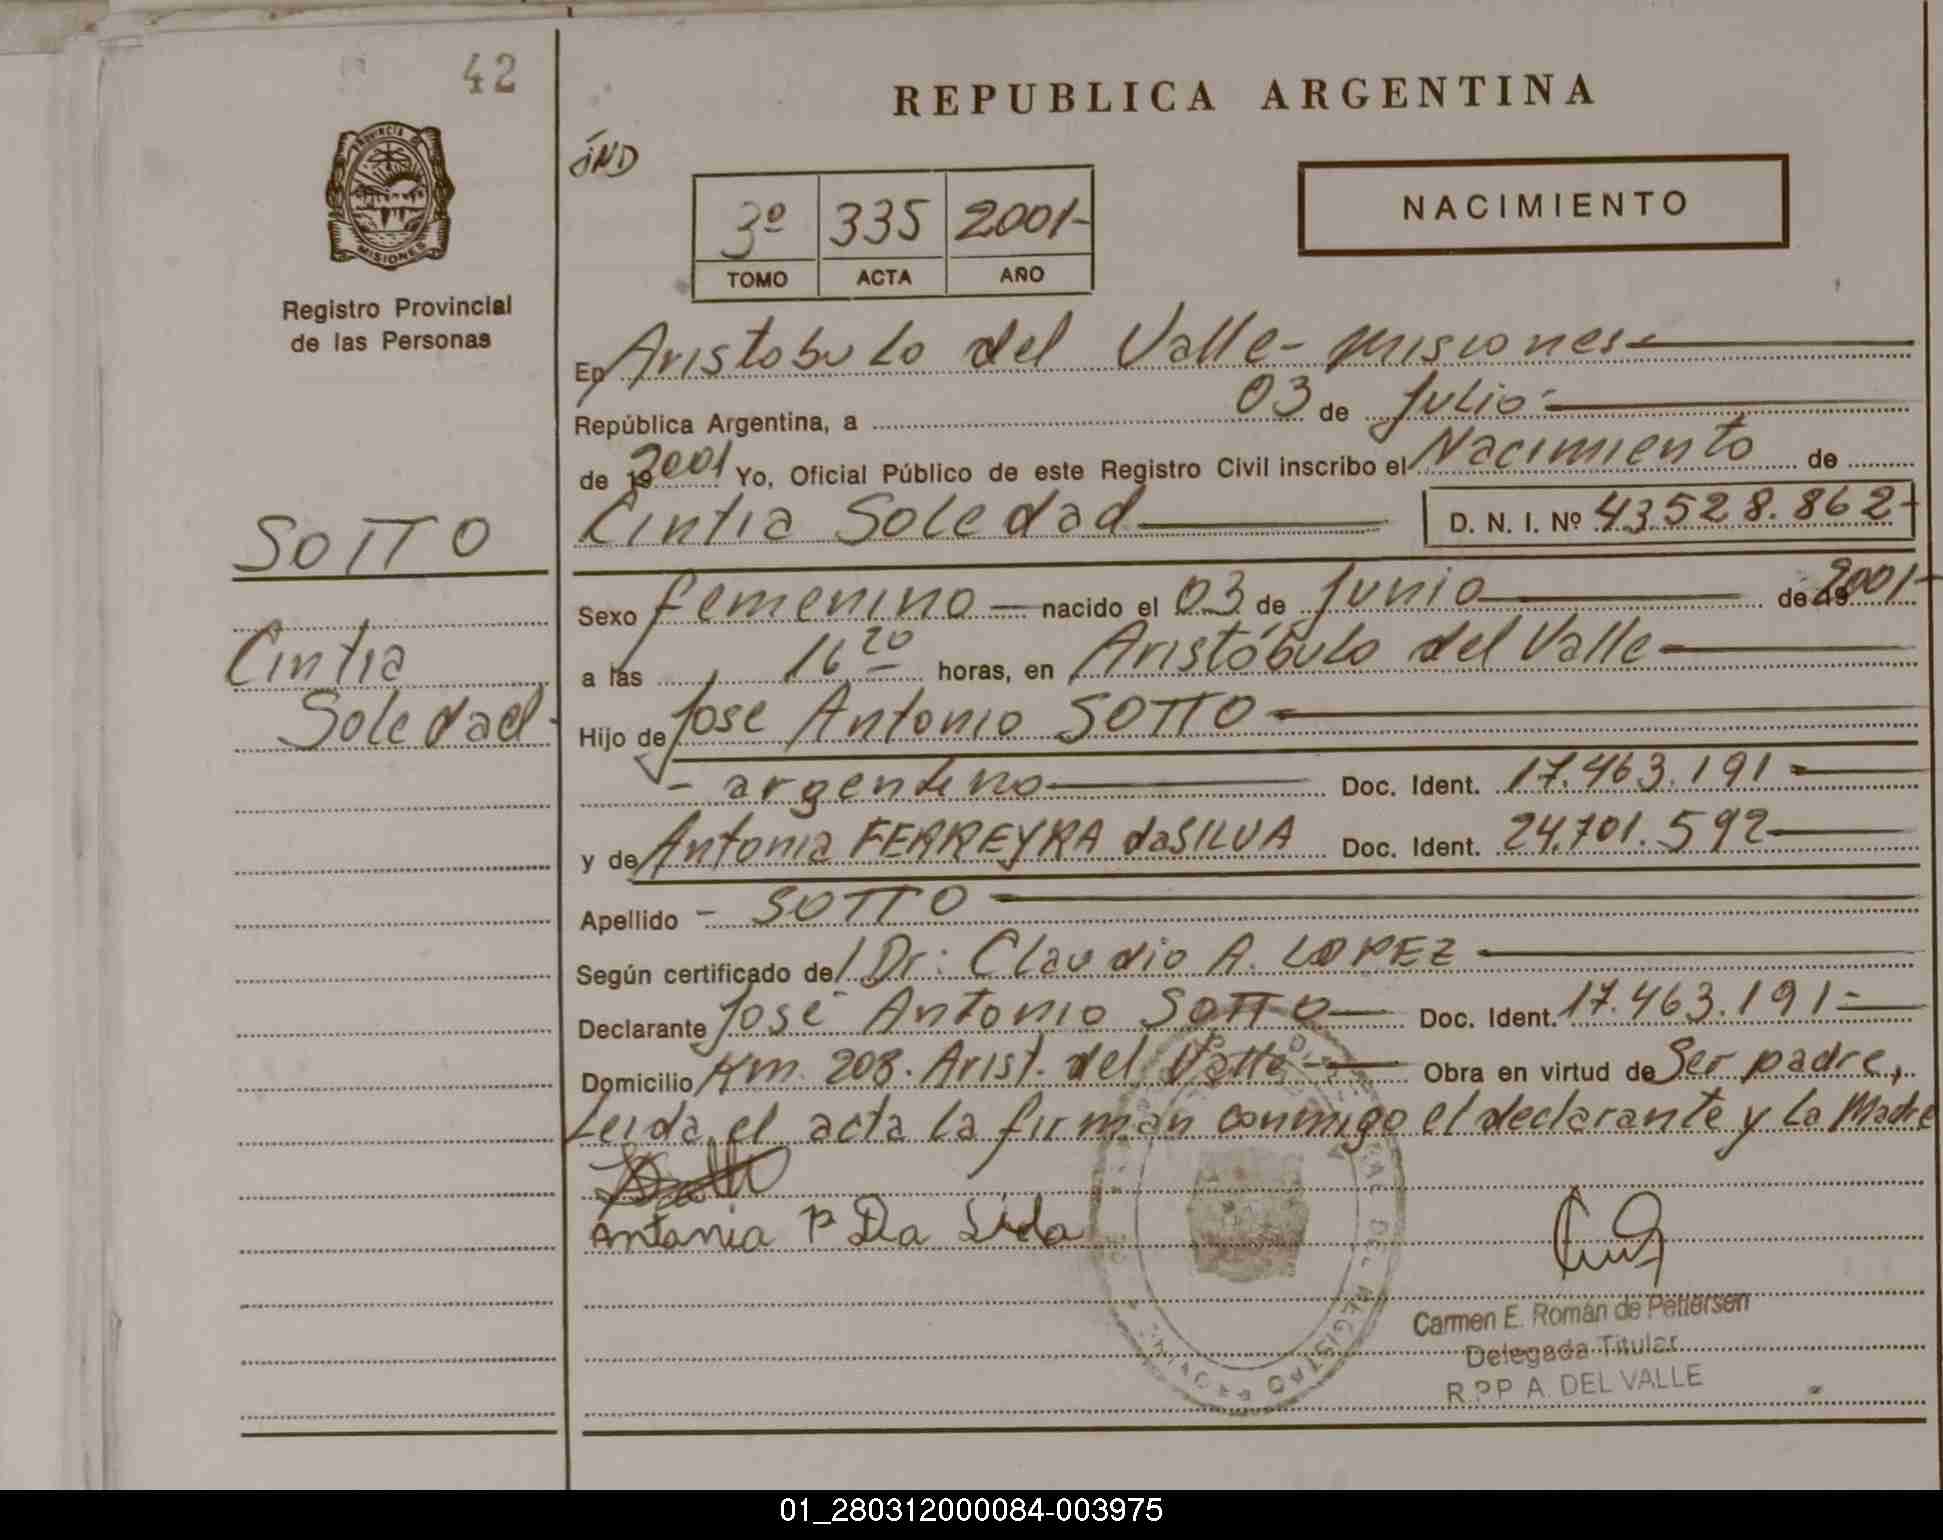 42
REPUBLICA ARGENTINA
IND
3º 335 2001-
TOMO ACTA AÑO
NACIMIENTO
PROVINCIA
MISIONES
Registro Provincial
de las Personas
En Aristobulo del Valle - Misiones
República Argentina, a 03 de Julio
de 19 2001 Yo, Oficial Público de este Registro Civil inscribo el Nacimiento de
Cintia Soledad D. N. I. Nº 43528.862-
SOTTO
Cintia
Soledad-
Sexo femenino nacido el 03 de Junio de 19 2001-
a las 16 20 horas, en Aristóbulo del Valle
Hijo de Jose Antonio SOTTO
- argentino Doc. Ident. 17.463.191
y de Antonia FERREYRA daSILVA Doc. Ident. 24.701.592
Apellido - SOTTO
Según certificado de Dr: Claudio A. LOPEZ
Declarante José Antonio SOTTO Doc. Ident. 17.463.191-
Domicilio Km. 208. Arist. del Valle- Obra en virtud de Ser padre,
Leida el acta la firman conmigo el declarante y La Madre
Antania
Carmen E. Román de Pettersen
Delegada Titular
R.P.P A. DEL VALLE
01_280312000084-003975